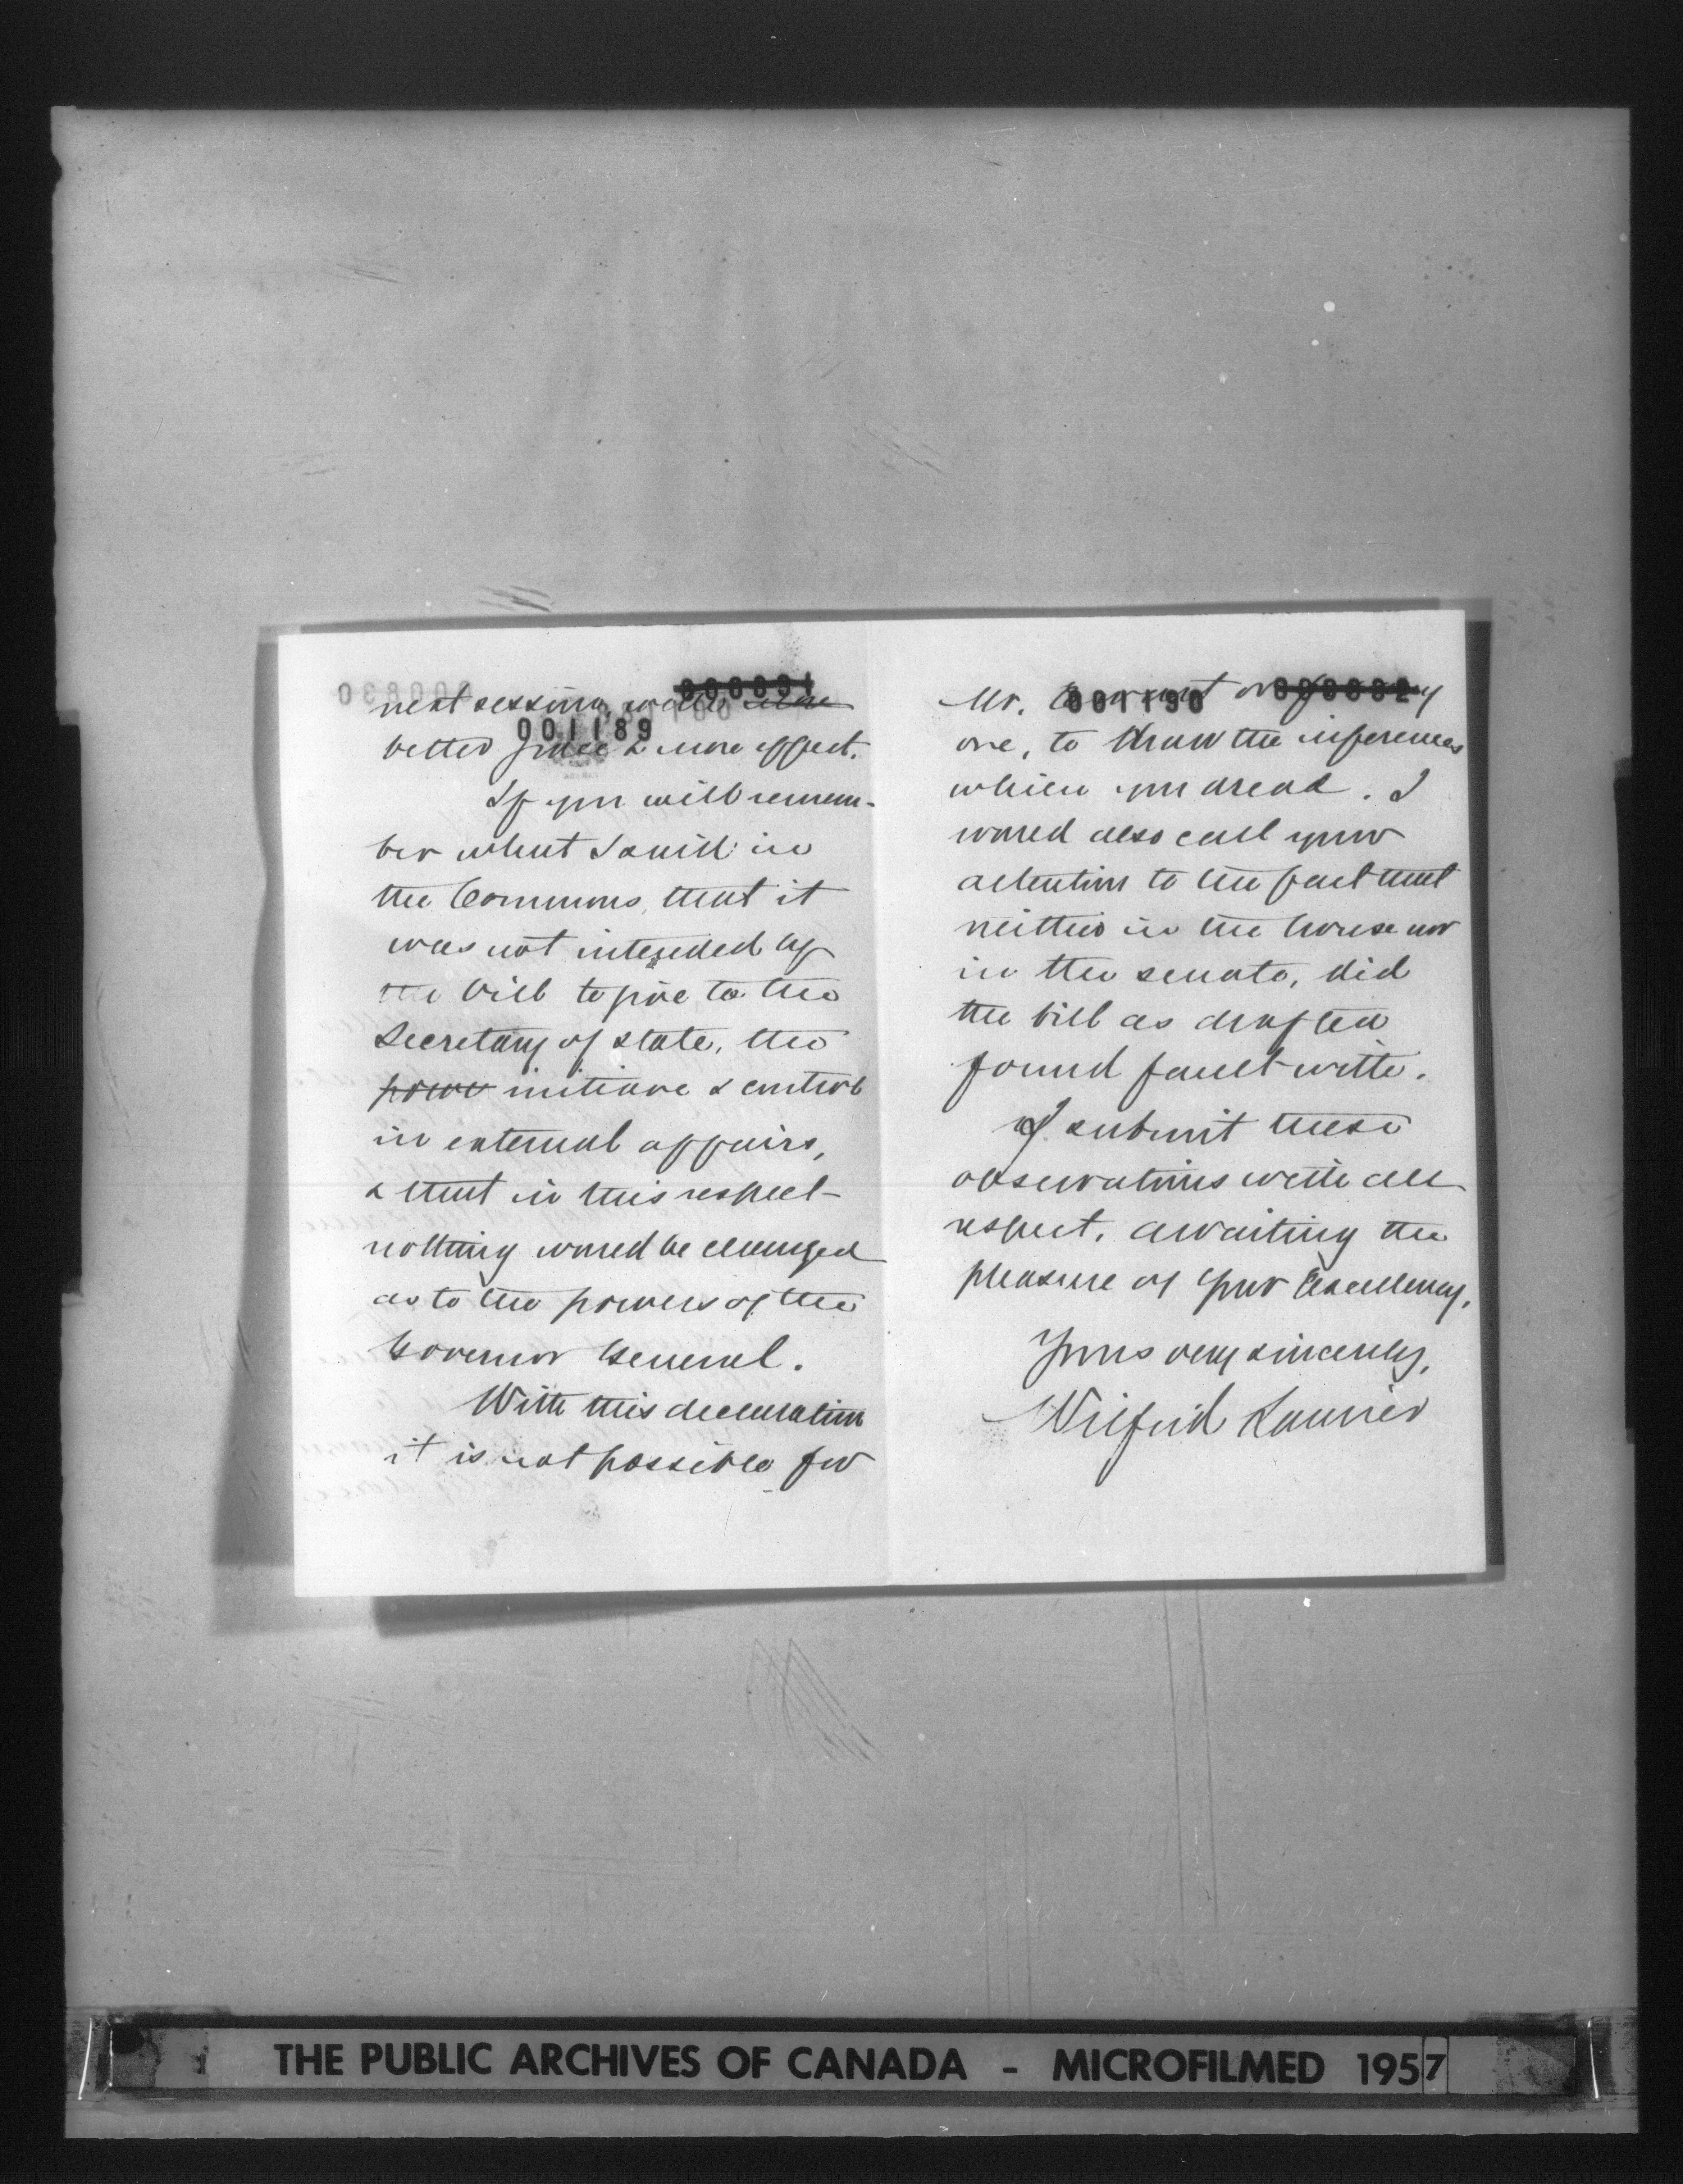 000831
next session, with more
001189
better grace & more effect.
If you will remem-
ber what I said in
the Commons, that it
was not intended by
the bill to give to the
Secretary of state, the
power initiave & control
in external affairs,
& that in this respect
nothing would be changed
as to the powers of the
Governor General.
With this declaration
it is not possible for
000832
Mr. or
001190
one, to draw the inferences
which you dread. I
would also call your
attention to the fact that
neither in the house nor
in the senate, did
the bill as drafted
found fault with.
I submit these
observations with all
respect, awaiting the
pleasure of Your Excellency,
Yours very sincerely,
Wilfrid Laurier
THE PUBLIC ARCHIVES OF CANADA - MICROFILMED 1957